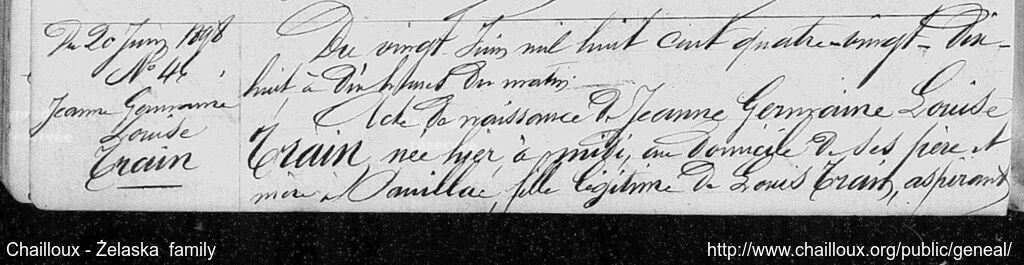 Du 20 Juin 1898
No 46
Jeanne Germaine
Louise
Train
Du vingt Juin mil huit cent quatre-vingt-dix-
huit, à dix heures du matin
Acte de naissance de Jeanne Germaine Louise
Train née hier à midi, au domicile de ses père et
mère à Pauillac, fille légitime de Louis Train, aspirant
Chailloux - Żelaska family
http://www.chailloux.org/public/geneal/